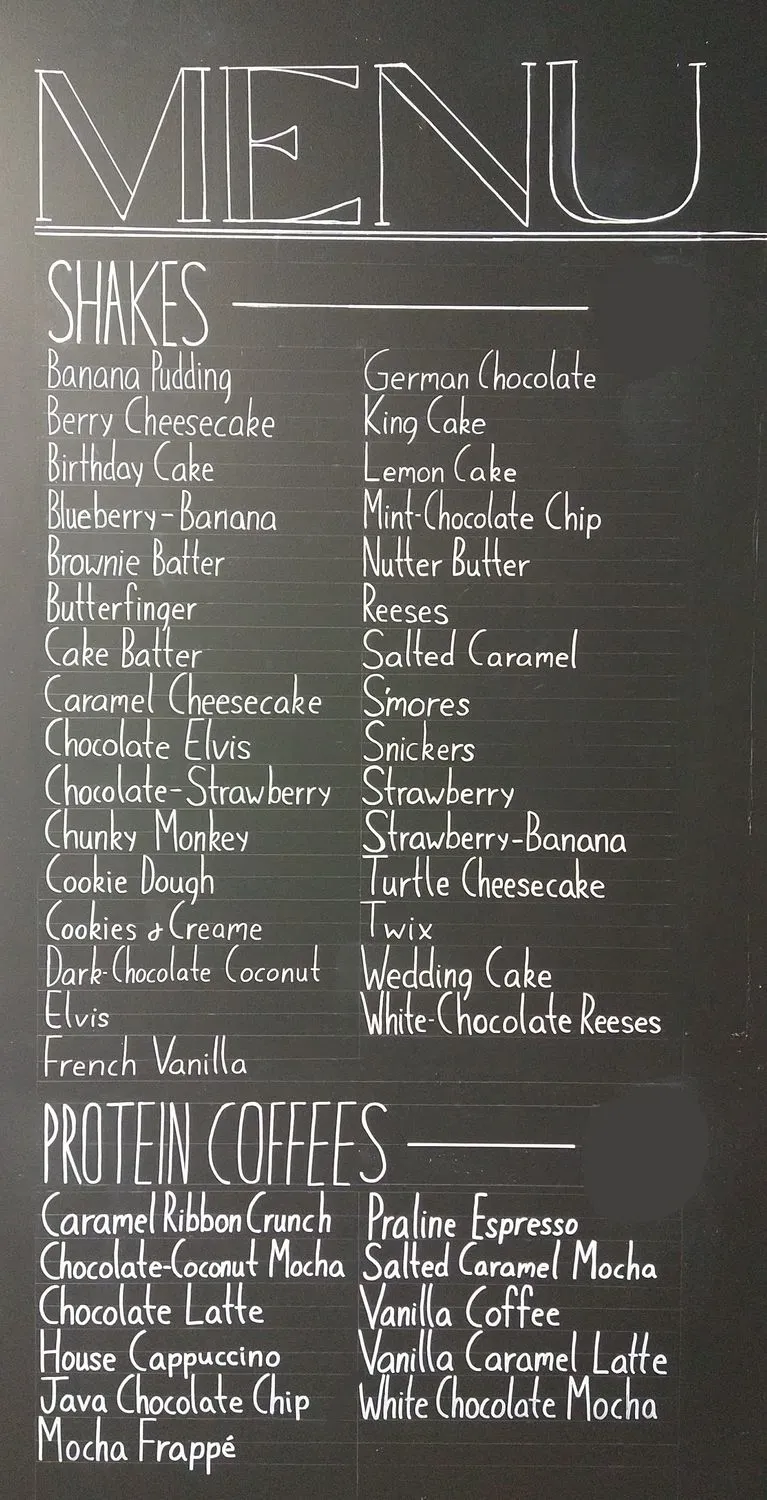 MENU
SHAKES
Banana Pudding
Berry Cheesecake
Birthday Cake
Blueberry-Banana
Brownie Batter
Butterfinger
Cake Batter
Caramel Cheesecake
Chocolate Elvis
Chocolate-Strawberry
Chunky Monkey
Cookie Dough
Cookies & Creame
Dark-Chocolate Coconut
Elvis
French Vanilla
German Chocolate
King Cake
Lemon Cake
Mint-Chocolate Chip
Nutter Butter
Reeses
Salted Caramel
S'mores
Snickers
Strawberry
Strawberry-Banana
Turtle Cheesecake
Twix
Wedding Cake
White-Chocolate Reeses
PROTEIN COFFEES
Caramel Ribbon Crunch
Chocolate-Coconut Mocha
Chocolate Latte
House Cappuccino
Java Chocolate Chip
Mocha Frappé
Praline Espresso
Salted Caramel Mocha
Vanilla Coffee
Vanilla Caramel Latte
White Chocolate Mocha